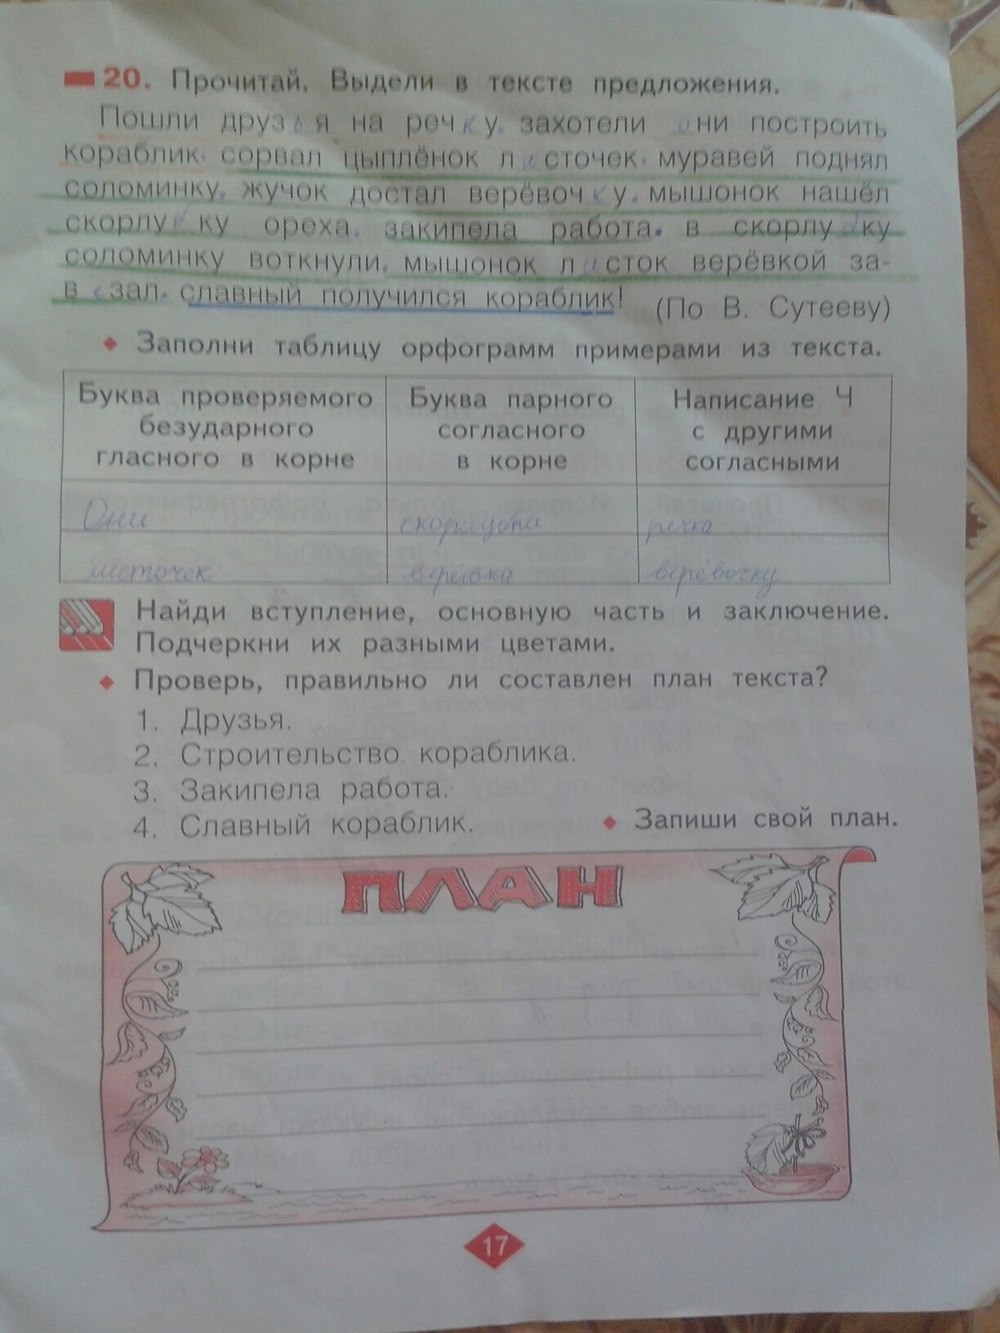 20. Прочитай. Выдели в тексте предложения.
Пошли друзья на речку. захотели они построить
кораблик. сорвал цыплёнок листочек. муравей поднял
соломинку. жучок достал верёвочку. мышонок нашёл
скорлупку ореха. закипела работа. в скорлупку
соломинку воткнули. мышонок листок верёвкой за-
в зал. славный получился кораблик!
(По В. Сутееву)
Заполни таблицу орфограмм примерами из текста.
Буква проверяемого безударного гласного в корне
Буква парного согласного в корне
Написание Ч с другими согласными
Они скорлупки речка
листочек верёвка верёвочку
Найди вступление, основную часть и заключение.
Подчеркни их разными цветами.
Проверь, правильно ли составлен план текста?
1. Друзья.
2. Строительство кораблика.
3. Закипела работа.
4. Славный кораблик.
Запиши свой план.
ПЛАН
17